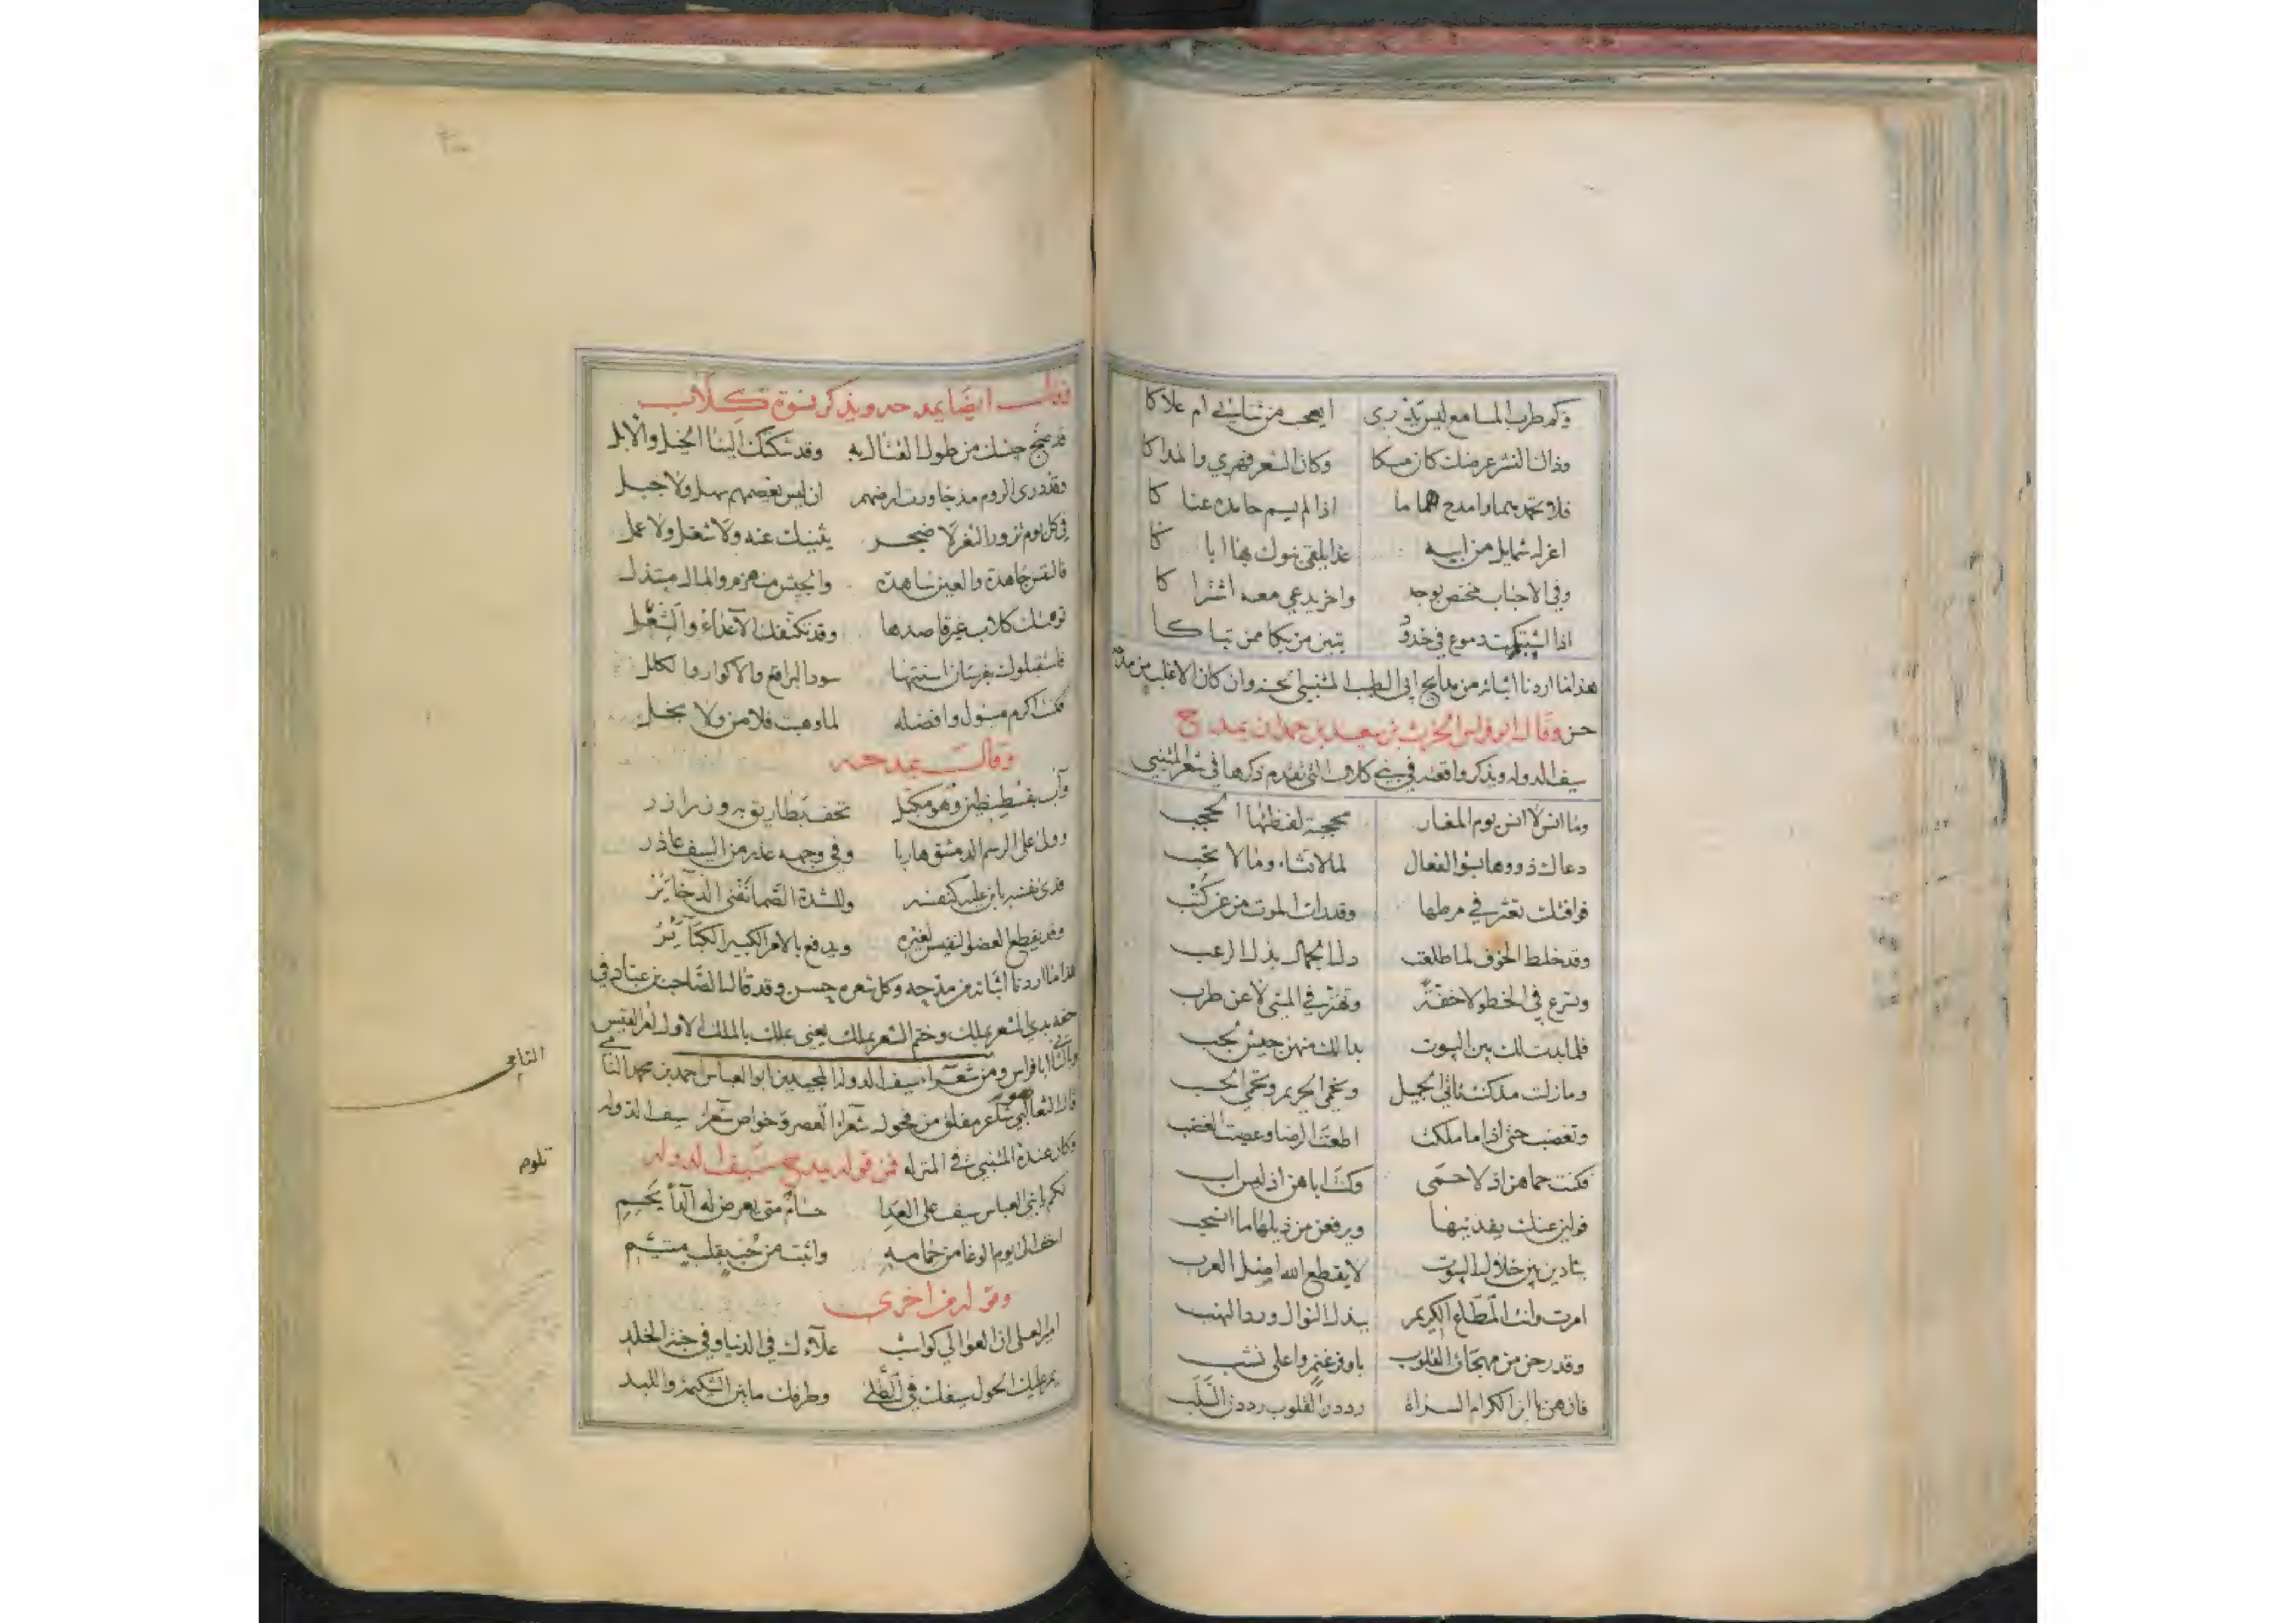 وكم طرب المسامع ليس يدري ايعجب من ثنائي ام علاكا
وذاك النشر عرضك كان مسكا وكان الشعر فهري والمداكا
فلا تحمدهما وامدح هماما اذا لم يسم حامده عناكا
اغر له شمايل من ابيه غدا يلقى بنوك بها اباكا
وفي الاحباب مختص بوجد واخر يدعي معه اشتراكا
اذا اشتبكت دموع في خدود تبين من بكا ممن تباكا
هذا ما اردنا اثباته من مدايح ابي الطيب المتنبي بحذو وان كان الاغلب من مدحه
حسن وقال ابو فراس الحرث بن سعيد بن حمدان يمدح
سيف الدوله ويذكر واقعته في بني كلاب التي تقدم ذكرها في شعر المتنبي
وما انس لا انس يوم المغار محجبة لفظتها الحجب
دعاك ذووها بسؤ الفعال لما لا تشاء وما لا تحب
فوافتك تعثر في مرطها وقد رات الموت من عن كثب
وقد خلط الخوف لما طلعت دل الجمال بذل الرعب
وتسرع في الخطو لا خفة وتهتز في المشي لا عن طرب
فلما بدت لك بين البيوت بدا لك منهن جيش لجب
وما زلت مذ كنت تاتي الجميل وتحمي الحريم وتحمي الحسب
وتغضب حتى اذا ما ملكت اطعت الرضا وعصيت الغضب
فكنت حماهن اذ لا حمى وكنت اباهن اذ ليس اب
فولين عنك يفدينها ويرفعن من ذيلها ما انسحب
ينادين بين خلال البيوت لا يقطع الله اصل العرب
امرت وانت المطاع الكريم ببذل النوال ورد النهب
وقد رحن من مهجات القلوب باوفر غنم واعلى نشب
فان هن يا ابن الكرام السراة رددن القلوب رددن السلب
وقال ايضا يمدحه ويذكر نسوة كلاب
قد ضج جيشك من طول القتال به وقد شكتك الينا الخيل والابل
وقد درى الروم مذ جاورت ارضهم ان ليس يعصمهم سهل ولا جبل
في كل يوم تزور الثغر لا ضجر يثنيك عنه ولا شغل ولا عمل
فالنفس جاهدة والعين ساهدة والجيش منهزم والمال مبتذل
توهمتك كلاب غير قاصدها وقد تكنفك الاعداء والشغل
فاستقبلوك بفرسان اسنتها سود البراقع والاكوار والكلل
فكنت اكرم مسئول وافضله لما وهبت فلا من ولا بخل
وقال يمدحه
وآب بقسطنطين وهو مكبل تحف بطاريق به وزرازر
وولى على الرسم الدمستق هاربا وفي وجهه عذر من السيف عاذر
فدى نفسه بابن عليه كنفسه وللشدة الصما تقنى الذخاير
وقد يقطع العضو النفيس لغيره ويدفع بالامر الكبير الكبائر
هذا ما اردنا اثباته من مدحه وكل شعره حسن وقد قال الصاحب بن عباد في
حقه بدي الشعر بملك وختم الشعر بملك يعني بالملك الاول امرا القيس
وبالثاني ابا فراس ومن شعراء سيف الدوله المجيدين ابو العباس احمد بن محمد النامي
قال الثعالبي هو شاعر مفلق من فحول شعراء العصر وخواص شعراء سيف الدوله
وكان عنده المتنبي في المنزله فمن قوله يمدح سيف الدوله
لكم يا بني العباس سيف على العدا حسام متى يعرض له الدأ يحسم
اخف الى يوم الوغا من حمامه واثبت من حب بقلب متيم
وقوله من اخرى
امير العلى ان العوالي كواسب علاءك في الدنيا وفي جنة الخلد
يمر عليك الحول سيفك في الطلى وطرفك ما بين الشكيمة واللبد
النامي
تلوم